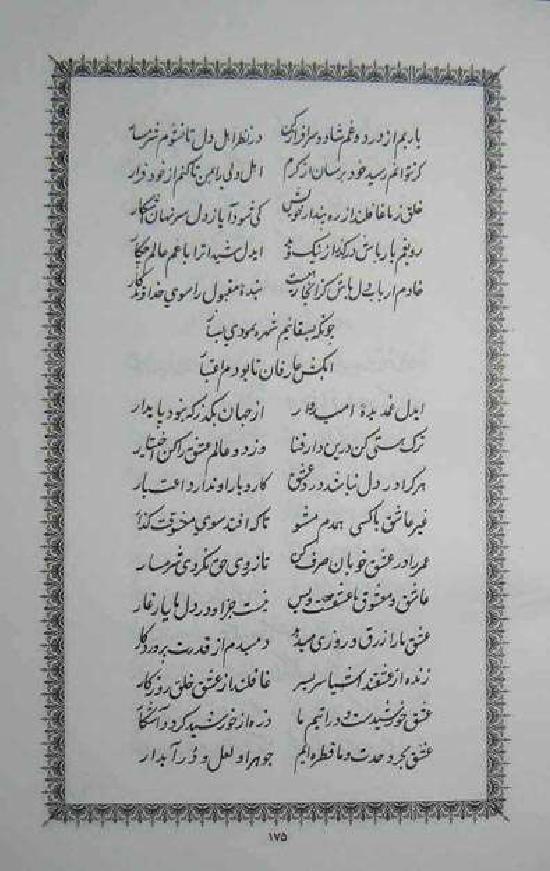 یا ربم از درد و غم شاد و سرافراز کن در نظر اهل دل تا نشوم شرمسار
گر توانم رسید خود برسان از کرم اهل دلی را ببین تا کنم از خود فرار
خلق ز ما غافلند از ره پندار خویش کی شود آیا ز دل سر نهان آشکار
رو بغم یار باش درگذر از نیک و بد ای دل شیدا ترا با غم عالم چکار
خادم ارباب دل باش بنده مقبول را سوی خداوندگار
چونکه شهره
انکش عارفان تا بودم
ای دل غمدیده امیدوار از جهان بگذر که نبود پایدار
ترک هستی کن درین دار فنا وز دو عالم عشق را کن اختیار
هر که را در دل نباشد درد عشق کار و بار او ندارد اعتبار
غیر عاشق با کسی همدم مشو تا که افتد سوی معشوقت گذار
عمر را در عشق خوبان صرف کن تا ز روی حق نگردی شرمسار
عاشق و معشوق با عشقست و بس نیست جز او در دل ما یار غار
عشق ما را رزق و روزی میدهد دمبدم از قدرت پروردگار
زنده از عشقند اشیا سربسر غافلند از عشق خلق روزگار
عشق خورشیدست و ذراتیم ما ذره از خورشید گردد آشکار
عشق بحر وحدت و ما قطره‌ایم جوهر او لعل و در آبدار
۱۷۵